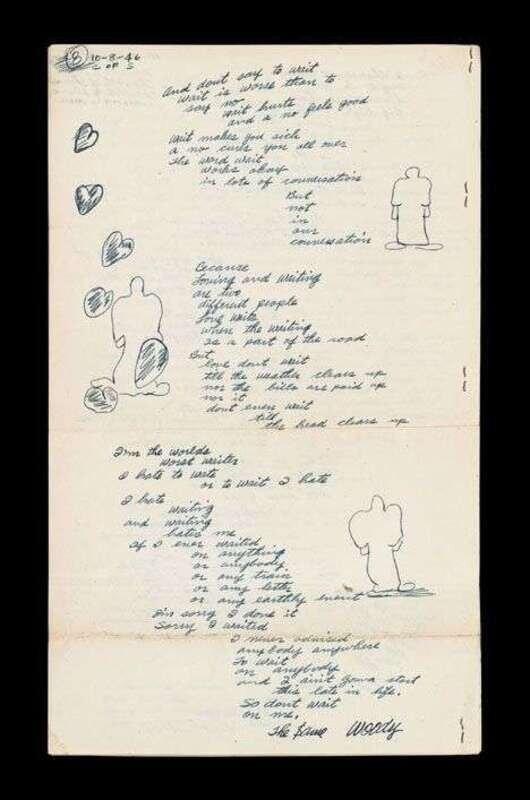 48 10-8-46
2 OF 3
And dont say to wait
wait is worse than to
say no.
wait hurts
and a no feels good
wait makes you sick
a no cures you all over
The word wait
works okay
in lots of conversation
But
not
in
our
conversation
Because
Loving and waiting
are two
different people
Love waits
when the waiting
is a part of the road
But
love dont wait
till the weather clears up
nor the bills are paid up
nor it
dont even wait
till
the head clears up
I'm the worlds
worst waiter
I hate to wait
or to wait I hate
I hate
waiting
and waiting
hates me
If I ever waited
on anything
or anybody
or any train
or any letter
or any earthly event
I'm sorry I done it
Sorry I waited
I never advised
anybody anywhere
To wait
on anybody
and I ain't gonna start
this late in life.
So dont wait
on me.
The Same Woody